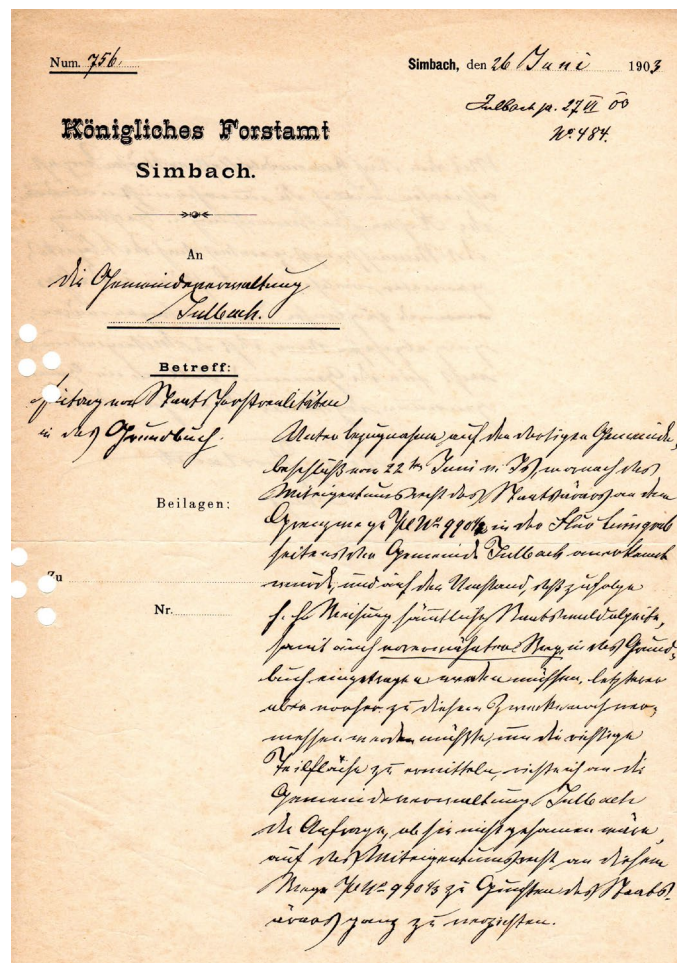 Num. 756.
Simbach, den 26 Juni 1903
Julbach pr. 27 VI 03
Nº 484.
Königliches Forstamt
Simbach.
An
die Gemeindeverwaltung
Julbach.
Betreff:
Eintrag von Staatsforstrealitäten
in das Grundbuch.
Beilagen:
Zu
Nr.
Unter Bezugnahme auf den dortigen Gemeinde-
beschluß vom 22ten Juni v. Js, wornach das
Miteigentumsrecht des Staatsärars an dem
Grenzwege Pl Nº 990 1/3 in der Flur
seitens der Gemeinde Julbach anerkannt
wurde, und auf den Umstand, daß zufolge
h. h. Weisung sämtliche Staatswaldobjekte,
somit auch vorerwähnter Weg, in das Grund-
buch eingetragen werden müssen, letzterer
aber vorher zu diesem Zwecke noch ver-
messen werden müßte, um die richtige
Teilfläche zu ermitteln, richte ich an die
Gemeindeverwaltung Julbach
die Anfrage, ob sie nicht gesonnen wäre,
auf das Miteigentumsrecht an diesem
Wege Pl Nº 990 1/3 zu Gunsten des Staats-
ärars ganz zu verzichten.